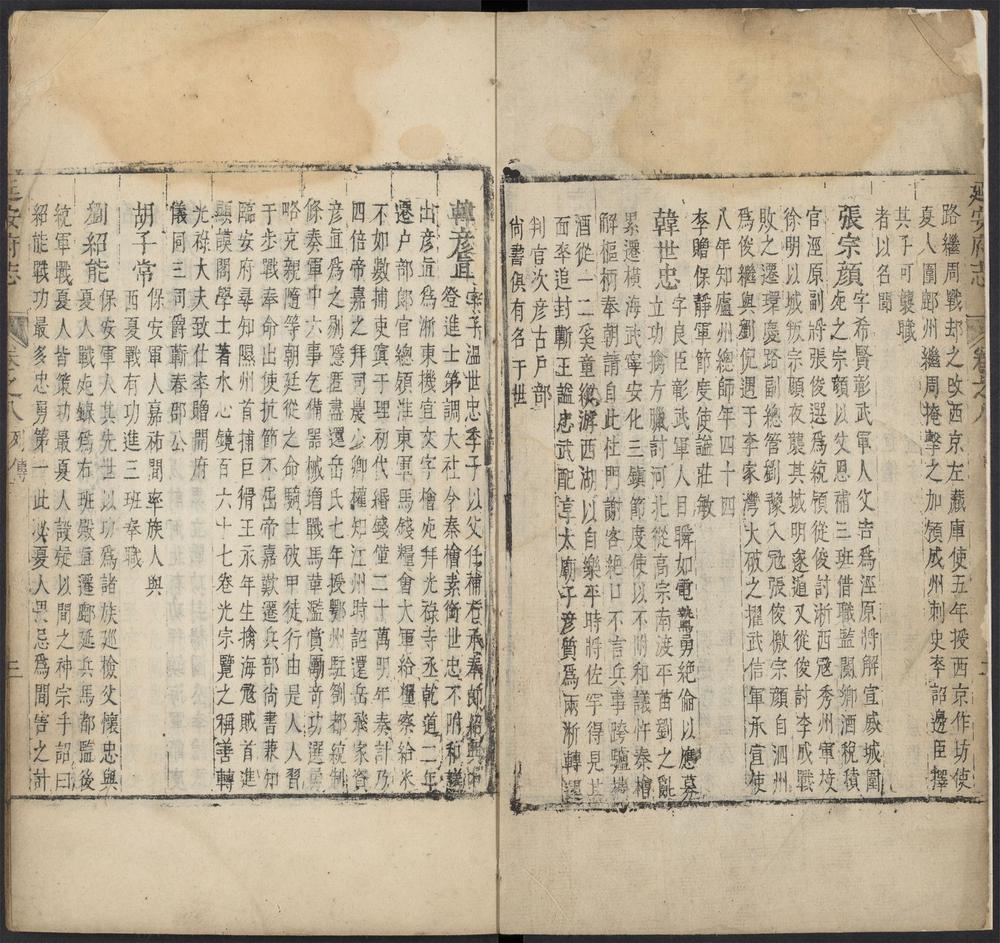 延安府志 卷之八
路繼周戰却之改西京左藏庫使五年授西京作坊使
夏人圍鄜州繼周掩擊之加領威州刺史卒詔邊臣擇
其子可襲職
者以名聞
張宗顔字希賢彰武軍人父吉爲涇原將解宣威城圍
死之宗顔以父恩補三班借職監閿鄉酒稅積
官涇原副將張俊選爲統領從俊討浙西寇秀州軍校
徐明以城叛宗顔夜襲其城明遂遁又從俊討李成戰
敗之遷環慶路副總管劉豫入寇張俊檄宗顔自泗州
爲俊繼與劉猊遇于李家灣大破之擢武信軍承宣使
八年知廬州總師年四十四
卒贈保靜軍節度使謚莊敏
韓世忠字良臣彰武軍人目瞬如電驍勇絶倫以應募
立功擒方臘討河北從高宗南渡平苗劉之亂
累遷橫海武寧安化三鎮節度使以不附和議忤秦檜
解樞柄奉朝請自此杜門謝客絶口不言兵事跨驢攜
酒從一二奚童縱游西湖以自樂平時將佐罕得見其
面卒追封蘄王謚忠武配享太廟子彦質爲兩浙轉運
判官次彦古戶部
尚書俱有名于世
韓彦直字子溫世忠季子以父任補右承奉郎紹興中
登進士第調大社令秦檜素銜世忠不附和議
出彦直爲浙東機宜文字檜死拜光祿寺丞乾道二年
遷戶部郎官總領淮東軍馬錢糧會大軍給糧察給米
不如數捕吏寘于理初代緡錢僅二十萬明年奏計乃
四倍帝嘉之拜司農少卿權知江州時詔還岳飛家資
彦直爲之剔隱匿盡還岳氏七年授鄂州駐劄都統制
條奏軍中六事乞備器械增戰馬革濫賞勵奇功選勇
略充親隨等朝廷從之命騎士被甲徒行由是人人習
于步戰奉命出使抗節不屈帝嘉歎遷兵部尚書兼知
臨安府尋知溫州首捕巨猾王永年生擒海寇賊首進
顯謨閣學士著水心鏡百六十七卷光宗覽之稱善轉
光祿大夫致仕卒贈開府
儀同三司爵蘄春郡公
胡子常保安軍人嘉祐間率族人與
西夏戰有功進三班奉職
劉紹能保安軍人其先世以功爲諸族廵檢父懷忠與
夏人戰死錄爲右班殿直遷鄜延兵馬都監後
統軍戰夏人皆策功最夏人設疑以間之神宗手詔曰
紹能戰功最多忠勇第一此必夏人畏忌爲間害之計
延安府志 卷之八 列傳 二